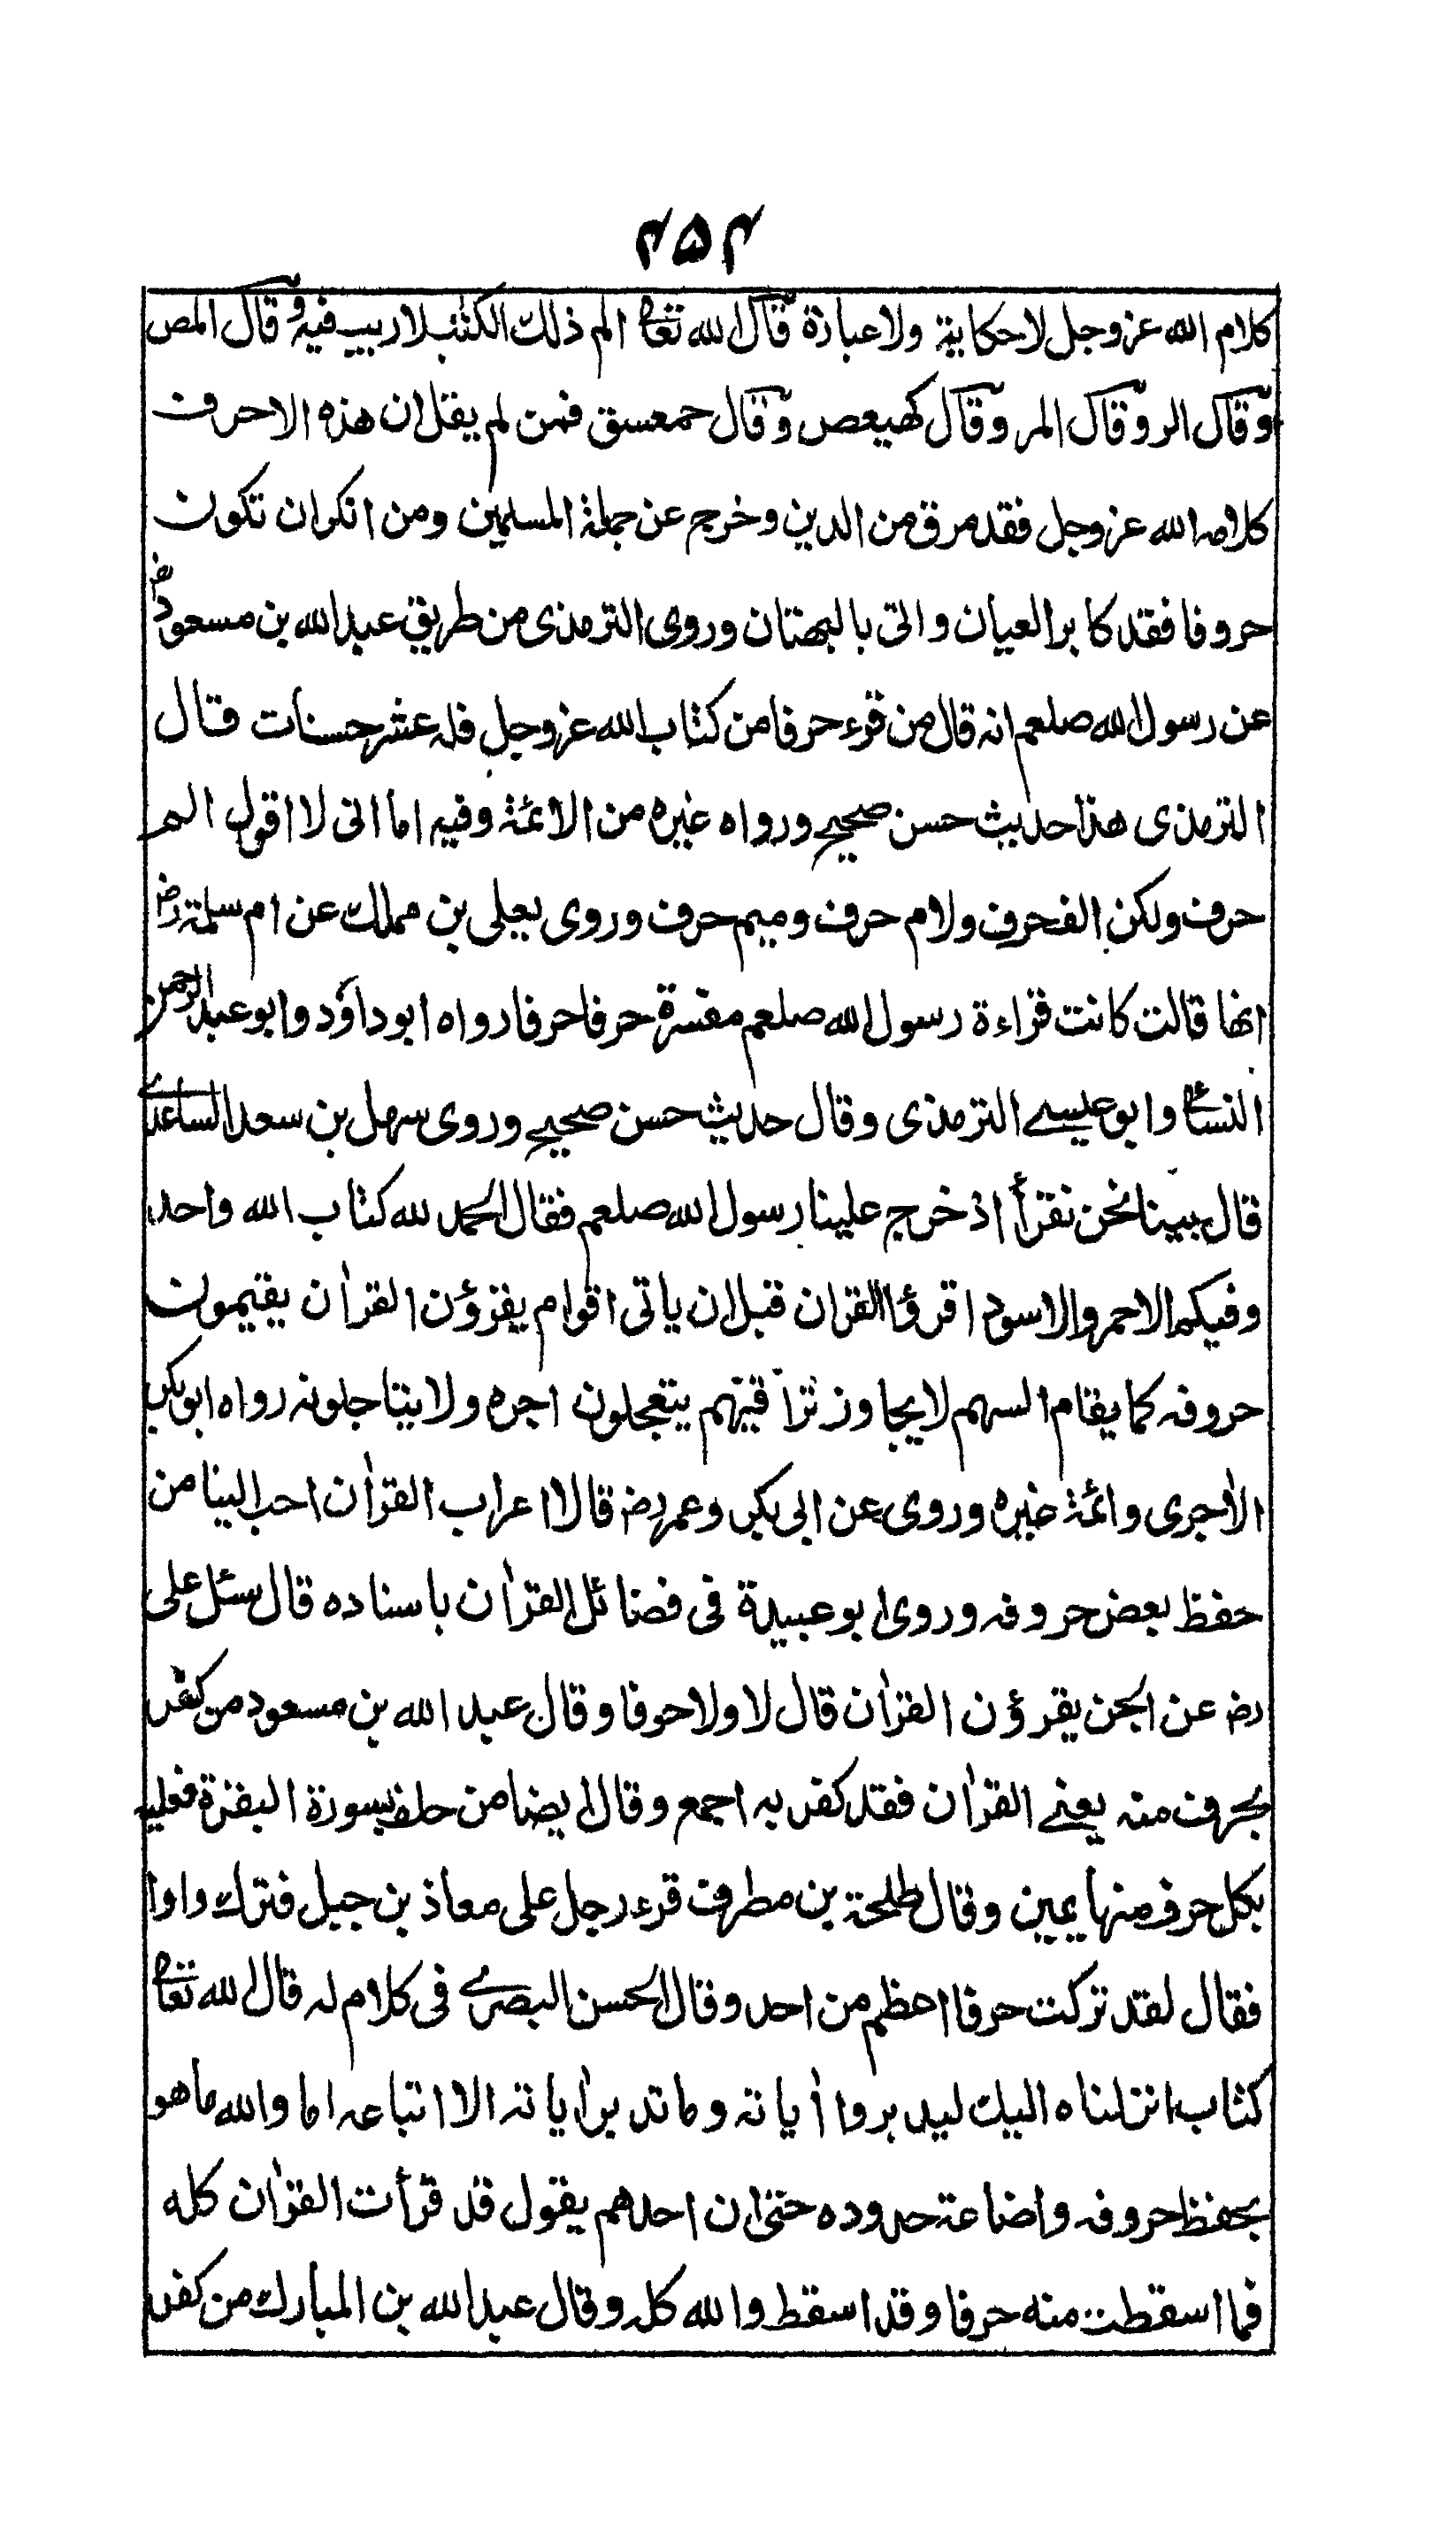 ۴۵۴
كلام الله عزوجل لاحكاية ولاعبارة قال الله تعالى الم ذلك الكتٰب لاريب فيه وقال المص
وقال الر وقال المر وقال كهيعص وقال حمعسق فمن لم يقل ان هذه الاحرف
كلام الله عزوجل فقد مرق من الدين وخرج عن جملة المسلمين ومن انكران تكون
حروفا فقد كابر العيان واتى بالبهتان وروى الترمذى من طريق عبد الله بن مسعود رض
عن رسول الله صلعم انه قال من قرء حرفا من كتاب الله عزوجل فله عشر حسنات قال
الترمذى هذا حديث حسن صحيح ورواه غيره من الائمة وفيه اما انى لا اقول الم
حرف ولكن الف حرف ولام حرف وميم حرف وروى يعلى بن مملك عن ام سلمة رض
انها قالت كانت قراءة رسول الله صلعم مفسرة حرفا حرفا رواه ابو داؤد وابو عبد الرحمن
النسائى وابو عيسے الترمذى وقال حديث حسن صحيح وروى سهل بن سعد الساعدے
قال بينا نحن نقرأ اذ خرج علينا رسول الله صلعم فقال الحمد لله كتاب الله واحد
وفيكم الاحمر والاسود اقرؤا القران قبل ان ياتى اقوام يقرؤن القراٰن يقيمون
حروفه كما يقام السهم لا يجاوز تراقيهم يتعجلون اجره ولا يتاجلونه رواه ابو بكر
الاٰجرى وائمة غيره وروى عن ابى بكر وعمر رض قالا اعراب القراٰن احب الينا من
حفظ بعض حروفه وروى ابو عبيدة فى فضائل القراٰن باسناده قال سئل على
رض عن الجن يقرؤن القراٰن قال لا ولا حرفا وقال عبد الله بن مسعود من كفر
بحرف منه يعنے القراٰن فقد كفر به اجمع وقال ايضا من حلف بسورة البقرة فعليه
بكل حرف منها يمين وقال طلحة بن مطرف قرء رجل على معاذ بن جبل فترك واوا
فقال لقد تركت حرفا اعظم من احد وقال الحسن البصرے فى كلام له قال الله تعالى
كتاب انزلناه اليك ليدبروا اٰياته وما تدبر اٰياته الا اتباعه اما والله ما هو
بحفظ حروفه واضاعة حدوده حتى ان احدهم يقول قد قرأت القراٰن كله
فما اسقطت منه حرفا وقد اسقط والله كله وقال عبد الله بن المبارك من كفر